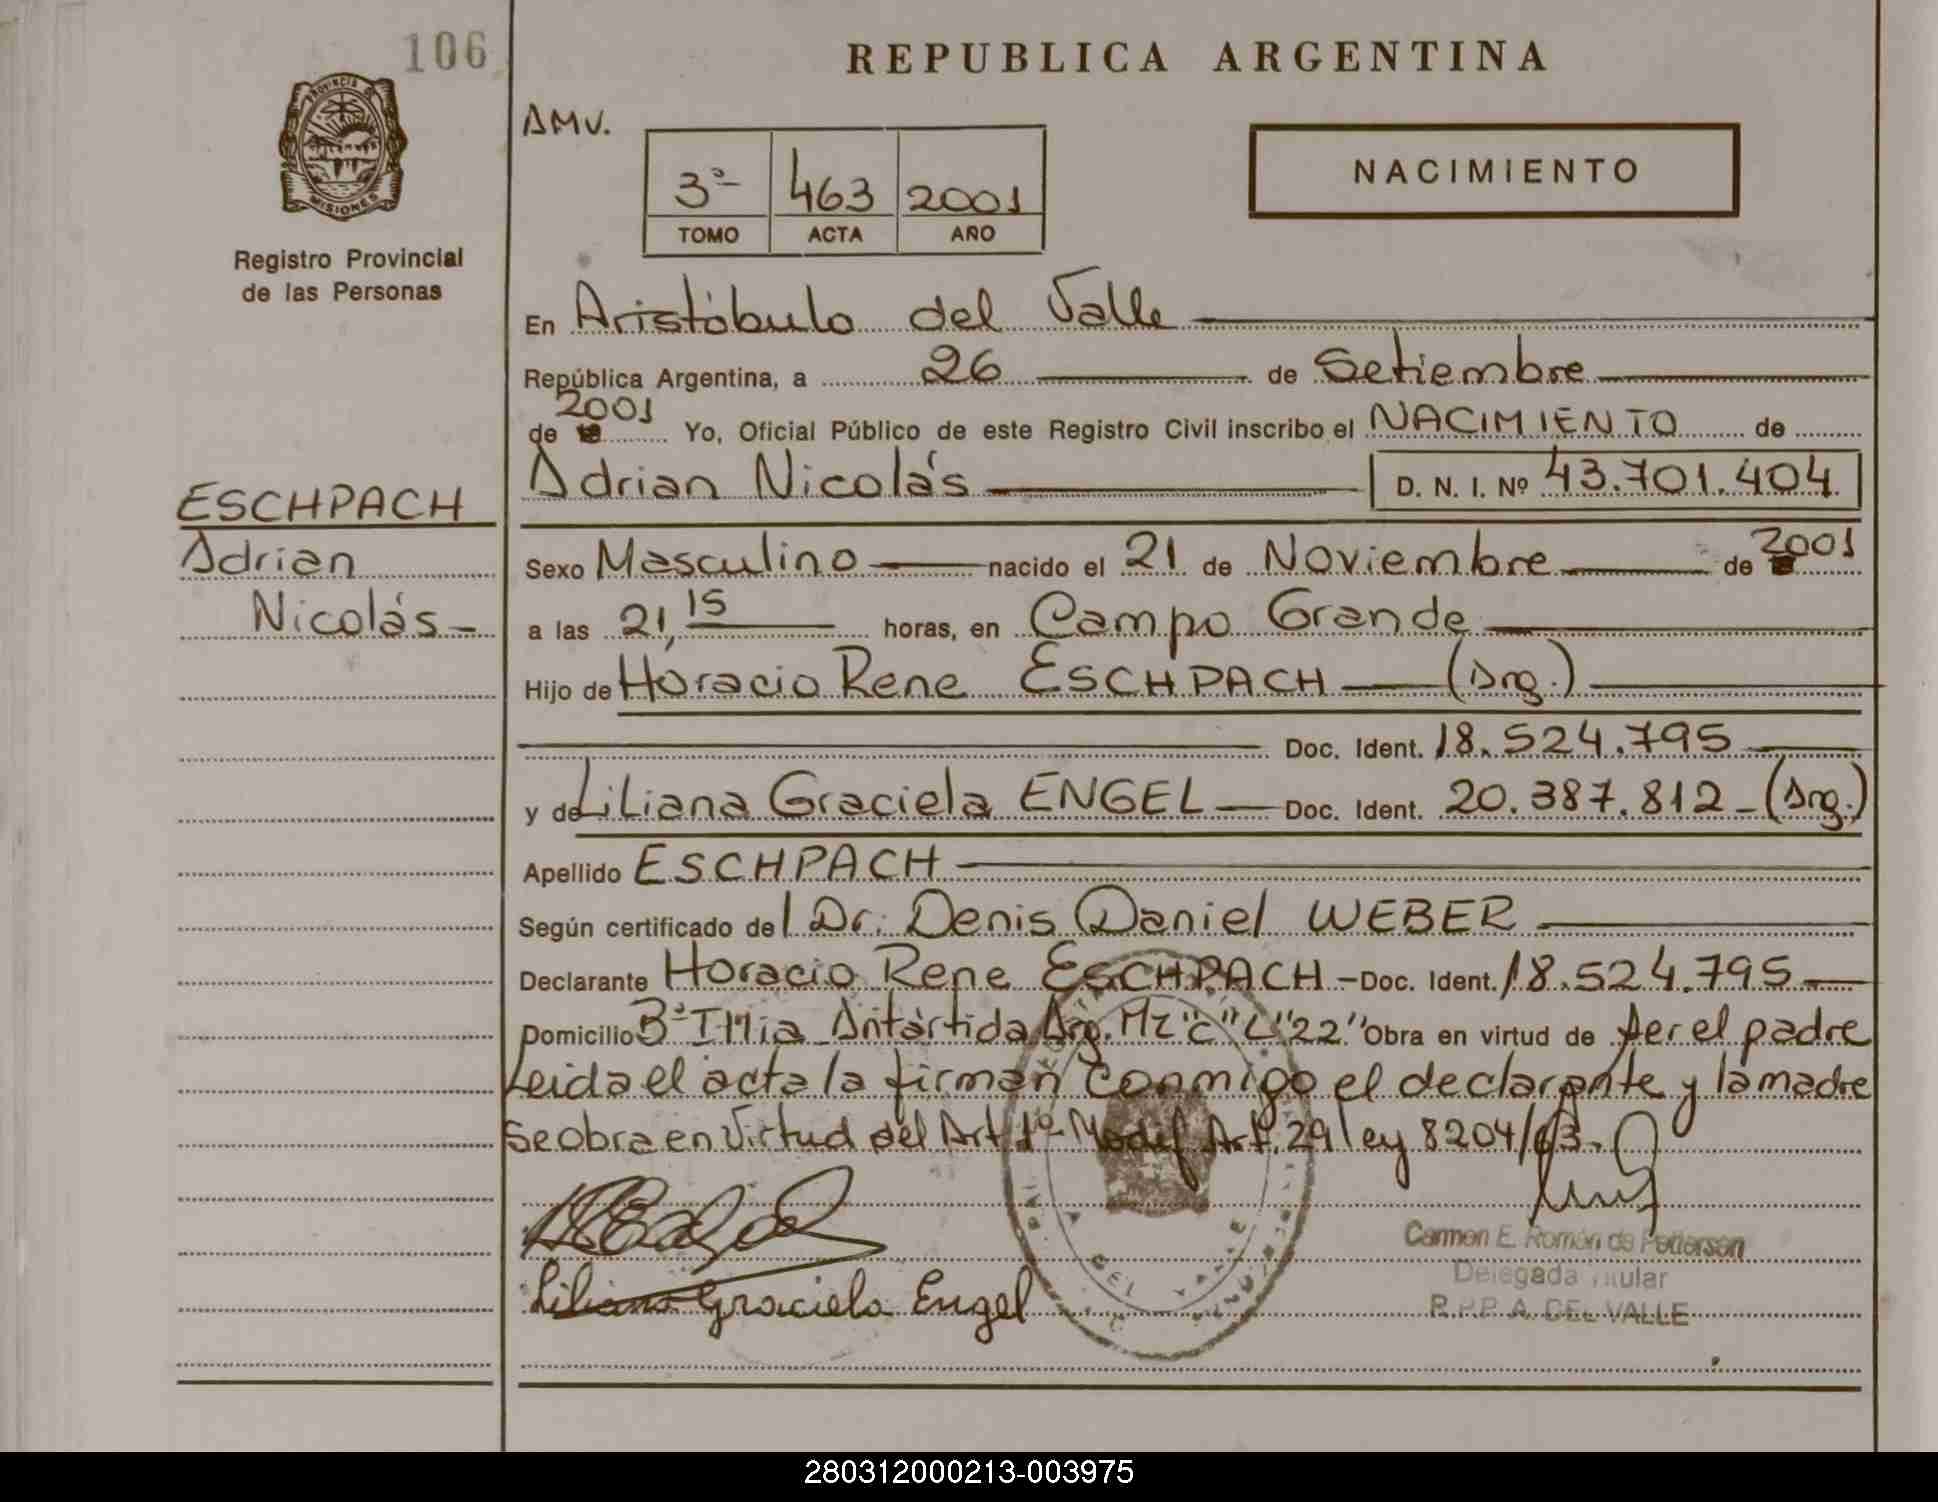 106
REPUBLICA ARGENTINA
PROVINCIA DE
MISIONES
Registro Provincial
de las Personas
AMV.
3º 463 2001
TOMO ACTA AÑO
NACIMIENTO
En Aristóbulo del Valle
República Argentina, a 26 de Setiembre
2001
de Yo, Oficial Público de este Registro Civil inscribo el NACIMIENTO de
Adrian Nicolás D. N. I. Nº 43.701.404
ESCHPACH
Adrian
Nicolás
Sexo Masculino nacido el 21 de Noviembre de 2001
a las 21,15 horas, en Campo Grande
Hijo de Horacio Rene ESCHPACH (Arg.)
Doc. Ident. 18.524.795
y de Liliana Graciela ENGEL Doc. Ident. 20.387.812 - (Arg.)
Apellido ESCHPACH
Según certificado del Dr. Denis Daniel WEBER
Declarante Horacio Rene ESCHPACH - Doc. Ident. 18.524.795
Domicilio Bº Antártida Arg. Mz "C" L "22" Obra en virtud de ser el padre
Leida el acta la firman conmigo el declarante y la madre
se obra en virtud del Art 1º Modif Art. 29 ley 8204/63.
Liliana Graciela Engel
Carmen E. Román de Pedersen
Delegada Titular
R.P.P. A. DEL VALLE
280312000213-003975